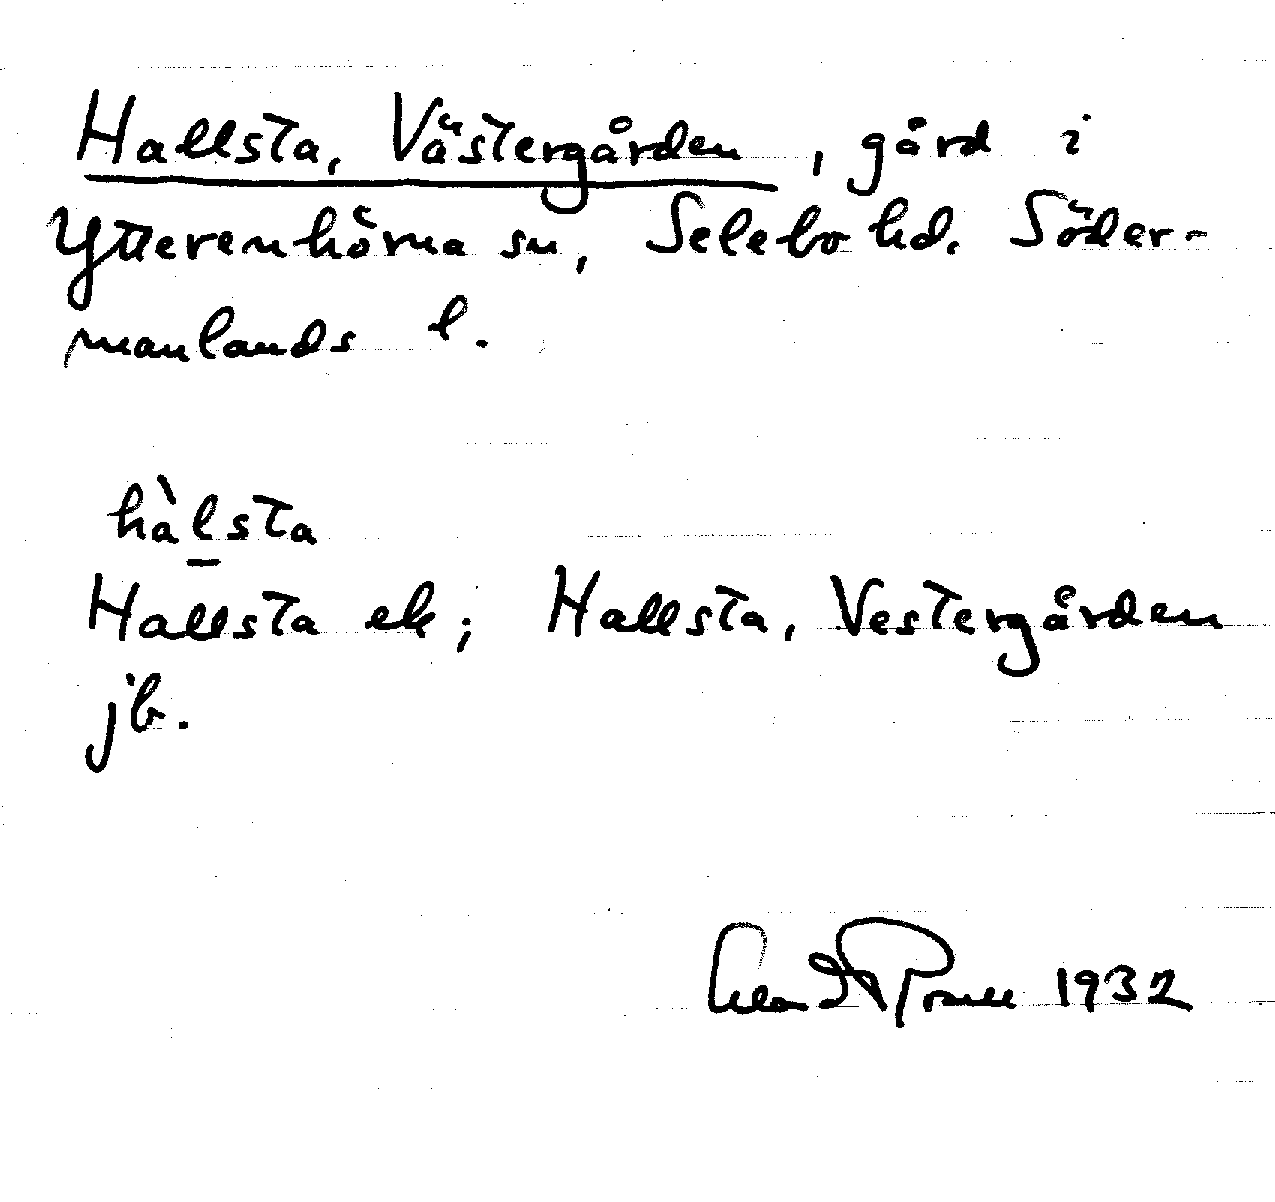 Hallsta, Västergården, gård i
Ytterenhörna sn, Selebo hd. Söder-
manlands l.
hàlsta
Hallsta ek; Hallsta, Vestergården
jb.
1932